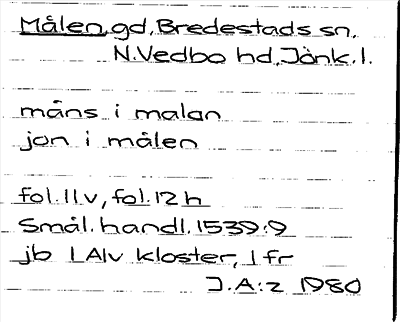 Målen, gd, Bredestads sn,
N.Vedbo hd, Jönk. l.
måns i malan
jon i målen
fol. 11 v, fol. 12 h
Smål. handl. 1539:9
jb 1 Alv kloster, 1 fr
J.A:z 1980